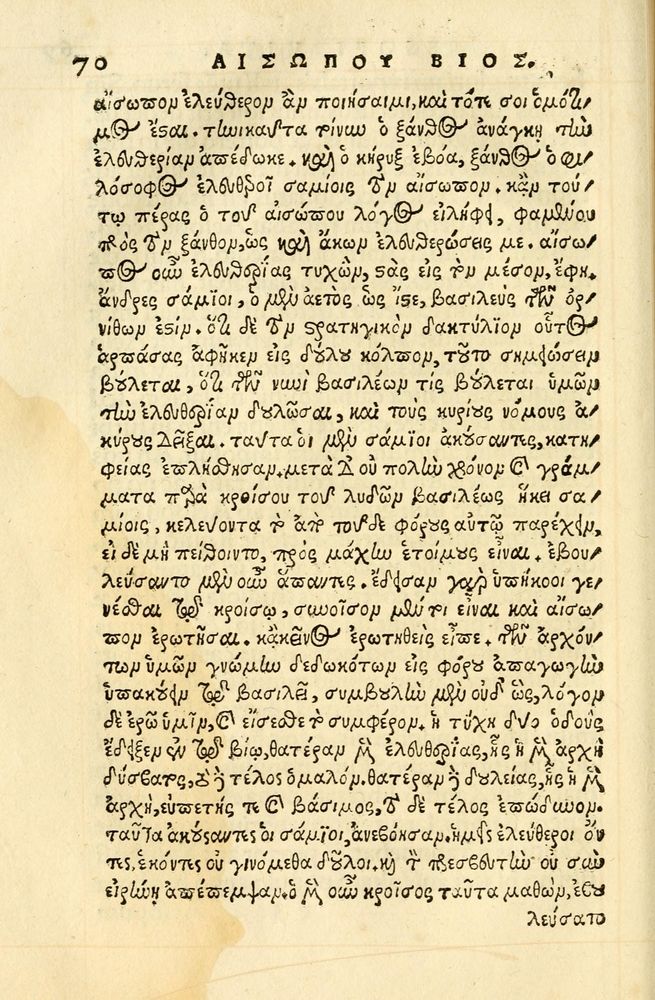 70 ΑΙΣΩΠΟΥ ΒΙΟΣ.
αἴσωπον ἐλεύθερον ἂν ποιήσαιμι, καὶ τότε σοι ὁμότι/
μος ἔσαι. τηνικαῦτα τοίνυν ὁ ξάνθος ἀνάγκῃ τὴν
ἐλευθερίαν ἀπέδωκε. καὶ ὁ κήρυξ ἐβόα, ξάνθος ὁ φι/
λόσοφος ἐλευθεροῖ σαμίοις τὸν αἴσωπον. κᾂν τού/
τῳ πέρας ὁ τοῦ αἰσώπου λόγος εἴληφε, φαμένου
πρὸς τὸν ξάνθον, ὡς καὶ ἄκων ἐλευθερώσεις με. αἴσω/
πος οὖν ἐλευθερίας τυχὼν, στὰς εἰς τὸ μέσον, ἔφη.
ἄνδρες σάμϊοι, ὁ μὲν ἀετὸς ὡς ἴστε, βασιλεύς τῶν ὀρ/
νίθων ἐστίν. ὅτι δὲ τὸν στρατηγικὸν δακτύλϊον οὗτος
ἁρπάσας ἀφῆκεν εἰς δούλου κόλπον, τοῦτο σημαίνειν
βούλεται, ὅτι τῶν νυνὶ βασιλέων τὶς βούλεται ὑμῶν
τὴν ἐλευθερίαν δουλῶσαι, καὶ τοὺς κυρίους νόμους ἀ/
κύρους δεῖξαι. ταῦτα οἱ μὲν σάμϊοι ἀκούσαντες, κατη/
φείας ἐπλήσθησαν. μετὰ δ' οὐ πολὺν χρόνον καὶ γράμ/
ματα παρὰ κροίσου τοῦ λυδῶν βασιλέως ἧκε σα/
μίοις, κελεύοντα τὸ ἀπὸ τοῦδε φόρους αὐτῷ παρέχειν,
εἰ δὲ μὴ πείθοιντο, πρὸς μάχην ἑτοίμους εἶναι. ἐβου/
λεύσαντο μὲν οὖν ἅπαντες. ἔδεισαν γὰρ ὑπήκοοι γε/
νέσθαι τῷ κροίσῳ, συνοῖσον μέντοι εἶναι καὶ αἴσω/
πον ἐρωτῆσαι. κἀκεῖνος ἐρωτηθεὶς εἶπε. τῶν ἀρχόν/
των ὑμῶν γνώμην δεδωκότων εἰς φόρου ἀπαγωγὴν
ὑπακούειν τῷ βασιλεῖ, συμβουλὴν μὲν οὐδ' ὣς, λόγον
δὲ ἐρῶ ὑμῖν, καὶ εἴσεσθε τὸ συμφέρον. ἡ τύχη δύο ὁδοὺς
ἔδειξεν ἐν τῷ βίῳ, θατέραν μὲν ἐλευθερίας, ἧς ἡ μὲν ἀρχὴ
δύσβατος, τὸ δὲ τέλος ὁμαλόν. θατέραν δὲ δουλείας, ἧς ἡ μὲν
ἀρχὴ, εὐπετής τε καὶ βάσιμος, τὸ δὲ τέλος ἐπώδυνον.
ταῦτα ἀκούσαντες οἱ σάμϊοι, ἀνεβόησαν. ἡμεῖς ἐλεύθεροι ὄν
τες, ἑκόντες οὐ γινόμεθα δοῦλοι. καὶ τὸν πρεσβευτὴν οὐ σὺν
εἰρήνῃ ἀπέπεμψαν. ὁ μὲν οὖν κροῖσος ταῦτα μαθὼν, ἐβου
λεύσατο